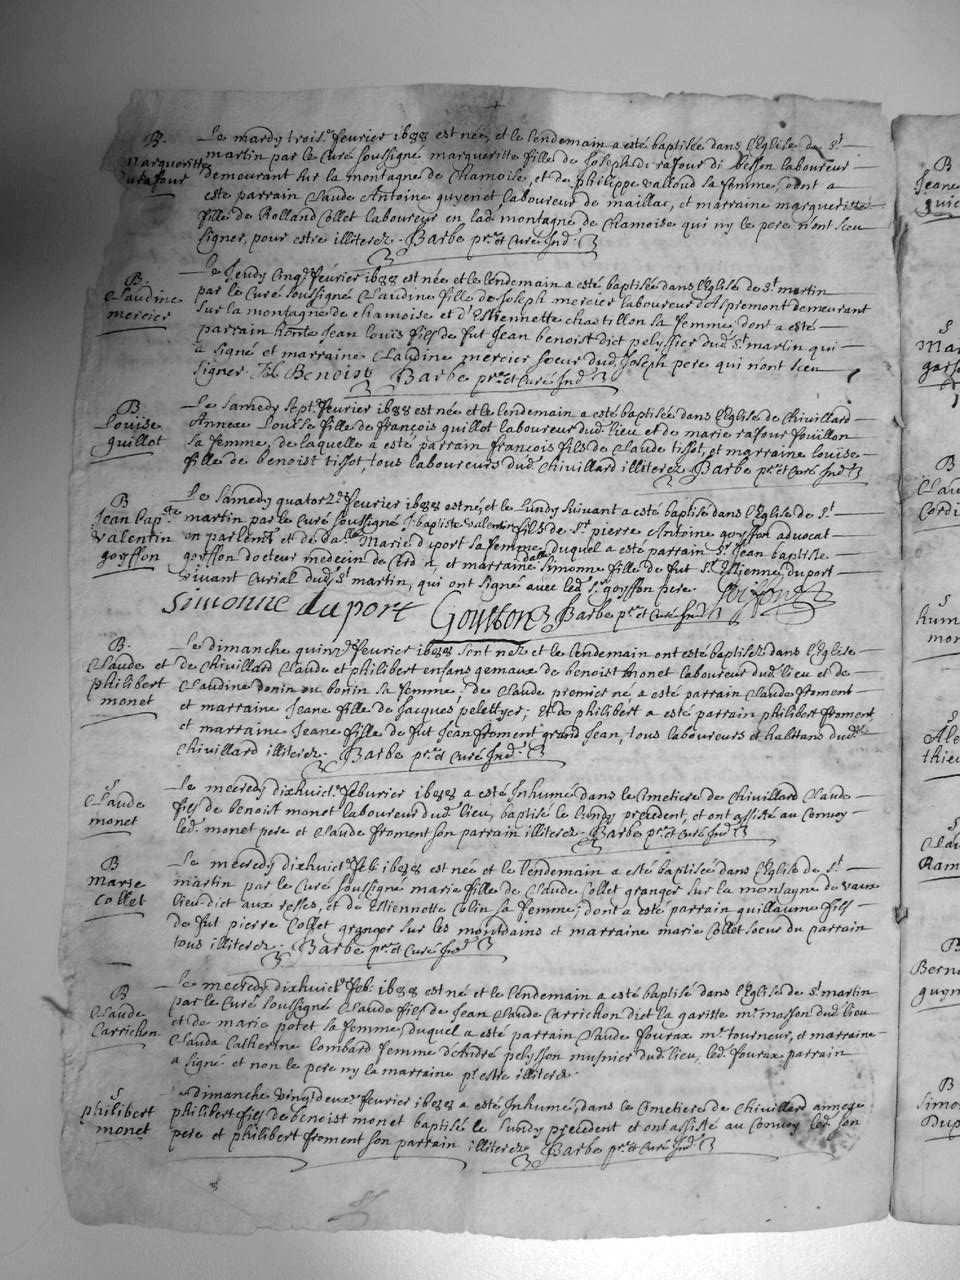 B.
Margueritte
durafour
Le mardy trois.e fevrier 1688 est née, et le lendemain a esté baptisée dans l'Eglise de St
martin par le Curé soussigné margueritte fille de Joseph de rafour di besson laboureur
demourant sur la montagne de Chamoise, et de philippe valloud sa femme, dont a
esté parrain Claude Antoine guyenet laboureur de maillac, et marraine margueritte
fille de Rolland Collet laboureur en lad. montagne de Chamoise qui ny le pere n'ont sceu
signer, pour estre illiterez. Barbe ptre et Curé Ind.
B
Claudine
mercier
Le Jeudy Cinq.e fevrier 1688 est née et le lendemain a esté baptisée dans l'Eglise de St martin
par le Curé soussigné Claudine fille de Joseph mercier laboureur d'Aspremont demeurant
sur la montagne de chamoise et d'Estiennette chastillon sa femme, dont a esté
parrain honte Jean louis fils de fut Jean benoist dict pelyssier dud. St martin qui
a signé et marraine Claudine mercier soeur dud. Joseph pere qui n'ont sceu
signer. Benoist Barbe ptre et Curé Ind.
B
Louise
guillot
Le samedy sept.e fevrier 1688 est née et le lendemain a esté baptisée dans l'Eglise de Chivillard
Annexe Louise fille de françois guillot laboureur dud. lieu et de marie rafour fouillon
sa femme, de laquelle a esté parrain françois fils de Claude tissot, et marraine louise
fille de benoist tissot tous laboureurs dud. Chivillard illiterez. Barbe ptre et Curé Ind.
B
Jean bap.te
valentin
goyffon
Le samedy quatorz.e fevrier 1688 est né, et le Lundy suivant a esté baptisé dans l'Eglise de St
martin par le Curé soussigné J. baptiste valentin fils de Sr pierre Antoine goyffon advocat
en parlemt et de dalle Marie duport sa femme duquel a esté parrain Sr Jean baptiste
goyffon docteur medecin de Cerd., et marraine dalle Simonne fille de fut Sr Estienne duport
vivant Curial dud. St martin, qui ont signé avec led. Sr goyffon pere
Simonne duport Goiffon Barbe ptre et Curé Ind. Goiffon
B.
Claude et
philibert
monet
Le dimanche quinz.e fevrier 1688 sont nez et le lendemain ont esté baptisez dans l'Eglise
de Chivillard Claude et philibert enfans gemaux de benoist monet laboureur dud. lieu et de
Claudine donin ou bonin sa femme; de Claude premier né a esté parrain Claude froment
et marraine Jeane fille de Jacques pelettyer; Et de philibert a esté parrain philibert froment
et marraine Jeane fille de fut Jean froment grand Jean, tous laboureurs et habitans dud.
Chivillard illiterez. Barbe ptre et Curé Ind.
S
Claude
monet
Le mecredy dixhuict.e feburier 1688 a esté Inhumé dans le Cimetiere de Chivillard Claude
fils de benoist monet laboureur dud. lieu, baptisé le Lundy precedent, et ont assisté au Convoy
led. monet pere et Claude froment son parrain illiterez. Barbe ptre et Curé Ind.
B
Marie
Collet
Le mecredy dixhuict.e feb. 1688 est née et le lendemain a esté baptisée dans l'Eglise de St
martin par le Curé soussigné marie fille de Claude Collet granger sur la montagne de vaux
lieu dict aux resses, et de Estiennette Colin sa femme; dont a esté parrain guillaume fils
de fut pierre Collet granger sur les montdains et marraine marie Collet soeur du parrain
tous illiterez. Barbe ptre et Curé Ind.
B
Claude
Carrichon
Le mecredy dixhuict.e feb. 1688 est né et le lendemain a esté baptisé dans l'Eglise de St martin
par le Curé soussigné Claude fils de Jean Claude Carrichon dict la gariste me masson dud. lieu
et de marie potet sa femme, duquel a esté parrain Claude fourax me tourneur, et marraine
Clauda Catherine lombard femme d'André pelysson musnier dud. lieu, led. fourax parrain
a signé et non le pere ny la marraine pr estre illiterez.
S
philibert
monet
Le dimanche vingt deux.e fevrier 1688 a esté Inhumé, dans le Cimetiere de Chivillard annexe
philibert fils de benoist monet baptisé le Lundy precedent et ont assisté au Convoy led. son
pere et philibert froment son parrain illiterez. Barbe ptre et Curé Ind.
B
Jeane
S
B
S
hum
mon
S
thie
S
Ram
B
Berna
guyn
B
Simo
Dup